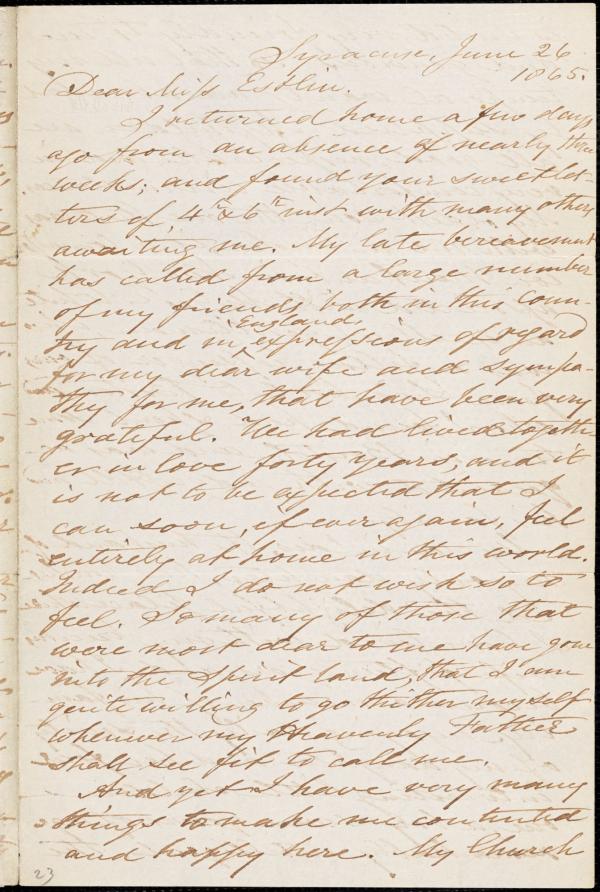 Syracuse, June 26
1865.
Dear Miss Estlin.
I returned home a few days
ago from an absence of nearly three
weeks; and found your sweet let-
ters of 4th & 6th inst. with many others
awaiting me. My late bereavement
has called from a large number
of my friends, both in this coun-
England,
try and in expressions of regard
for my dear wife and sympa-
thy for me, that have been very
grateful. We had lived togeth-
er in love forty years, and it
is not to be expected that I
can soon, if ever again, feel
entirely at home in this world.
Indeed I do not wish so to
feel. So many of those that
were most dear to me have gone
into the Spirit land, that I am
quite willing to go thither myself
whenever my Heavenly Father
shall see fit to call me.
And yet I have very many
things to make me contented
and happy here. My Church
23